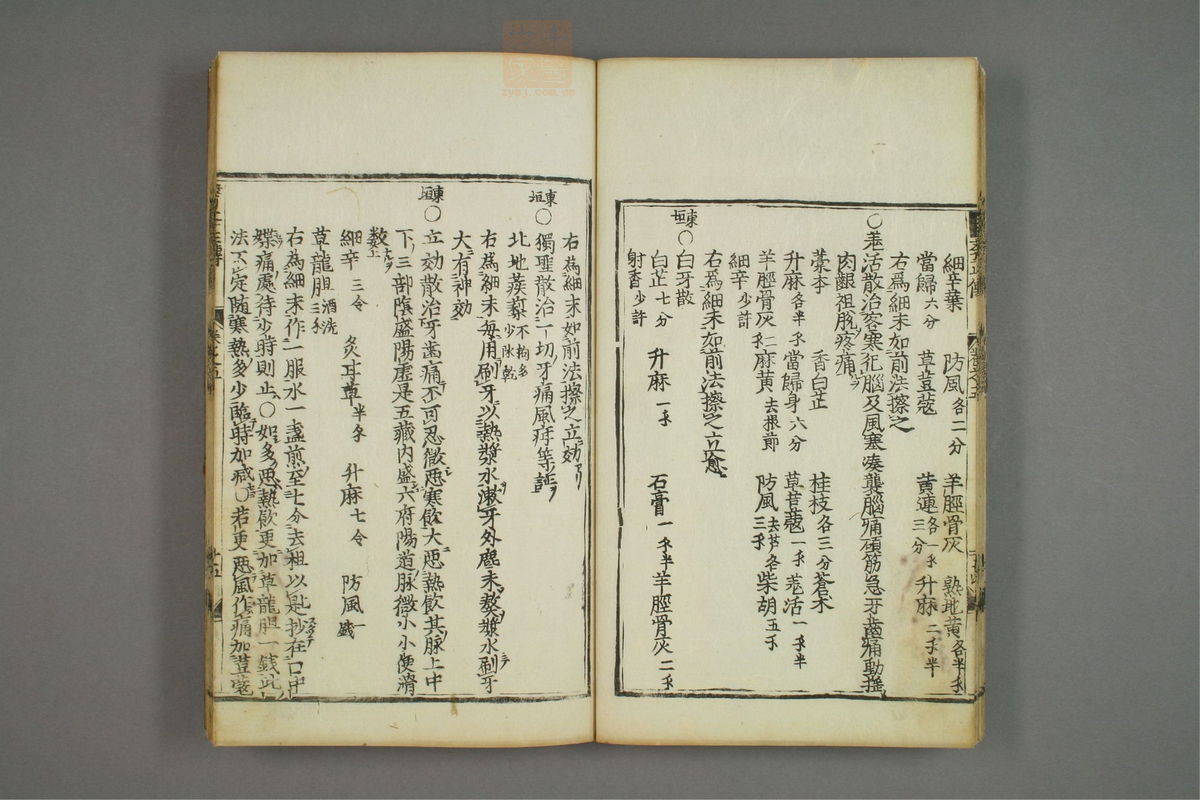 細辛葉 防風各二分 羊脛骨灰 熟地黄各半〻
當歸六分 草荳蔲 黄連各一〻三分 升麻二〻半
右爲細末如前法擦之
〇羗活散治客寒犯腦及風寒湊襲腦痛項筋急牙齒痛動摇
肉齦袒脫疼痛
藁本 香白芷 桂枝各三分 蒼木
升麻各半〻 當歸身六分 草荳蔲一〻 羗活一〻半
羊脛骨灰二〻 麻黄去根節 防風三〻去芦各 柴胡五〻
細辛少許
右爲細末如前法擦之立愈
東垣〇白牙散
白芷七分 升麻一〻 石膏一〻半 羊脛骨灰二〻
射香少許
右為細末如前法擦之立効
東垣〇獨聖散治一切牙痛風疳等証
北地蒺藜不拘多少陰乾
右為細末每用刷牙以熱漿水漱牙外麁末熬漿水刷牙
大有神効
東垣〇立効散治牙歯痛不可忍微惡寒飲大惡熱飲其脉上中
下三部陰盛陽虛是五藏内盛六府陽道脉微小小便滑
数上
細辛三令 炙耳草半〻 升麻七令 防風一戔
草龍胆酒洗三〻
右為細末作一服水一盞煎至七分去柤以匙抄在口中
㗖痛處待少時則止〇如多惡熱飲更加草龍胆一錢此
法不定随寒熱多少臨時加减〇若更惡風作痛加荳蔲